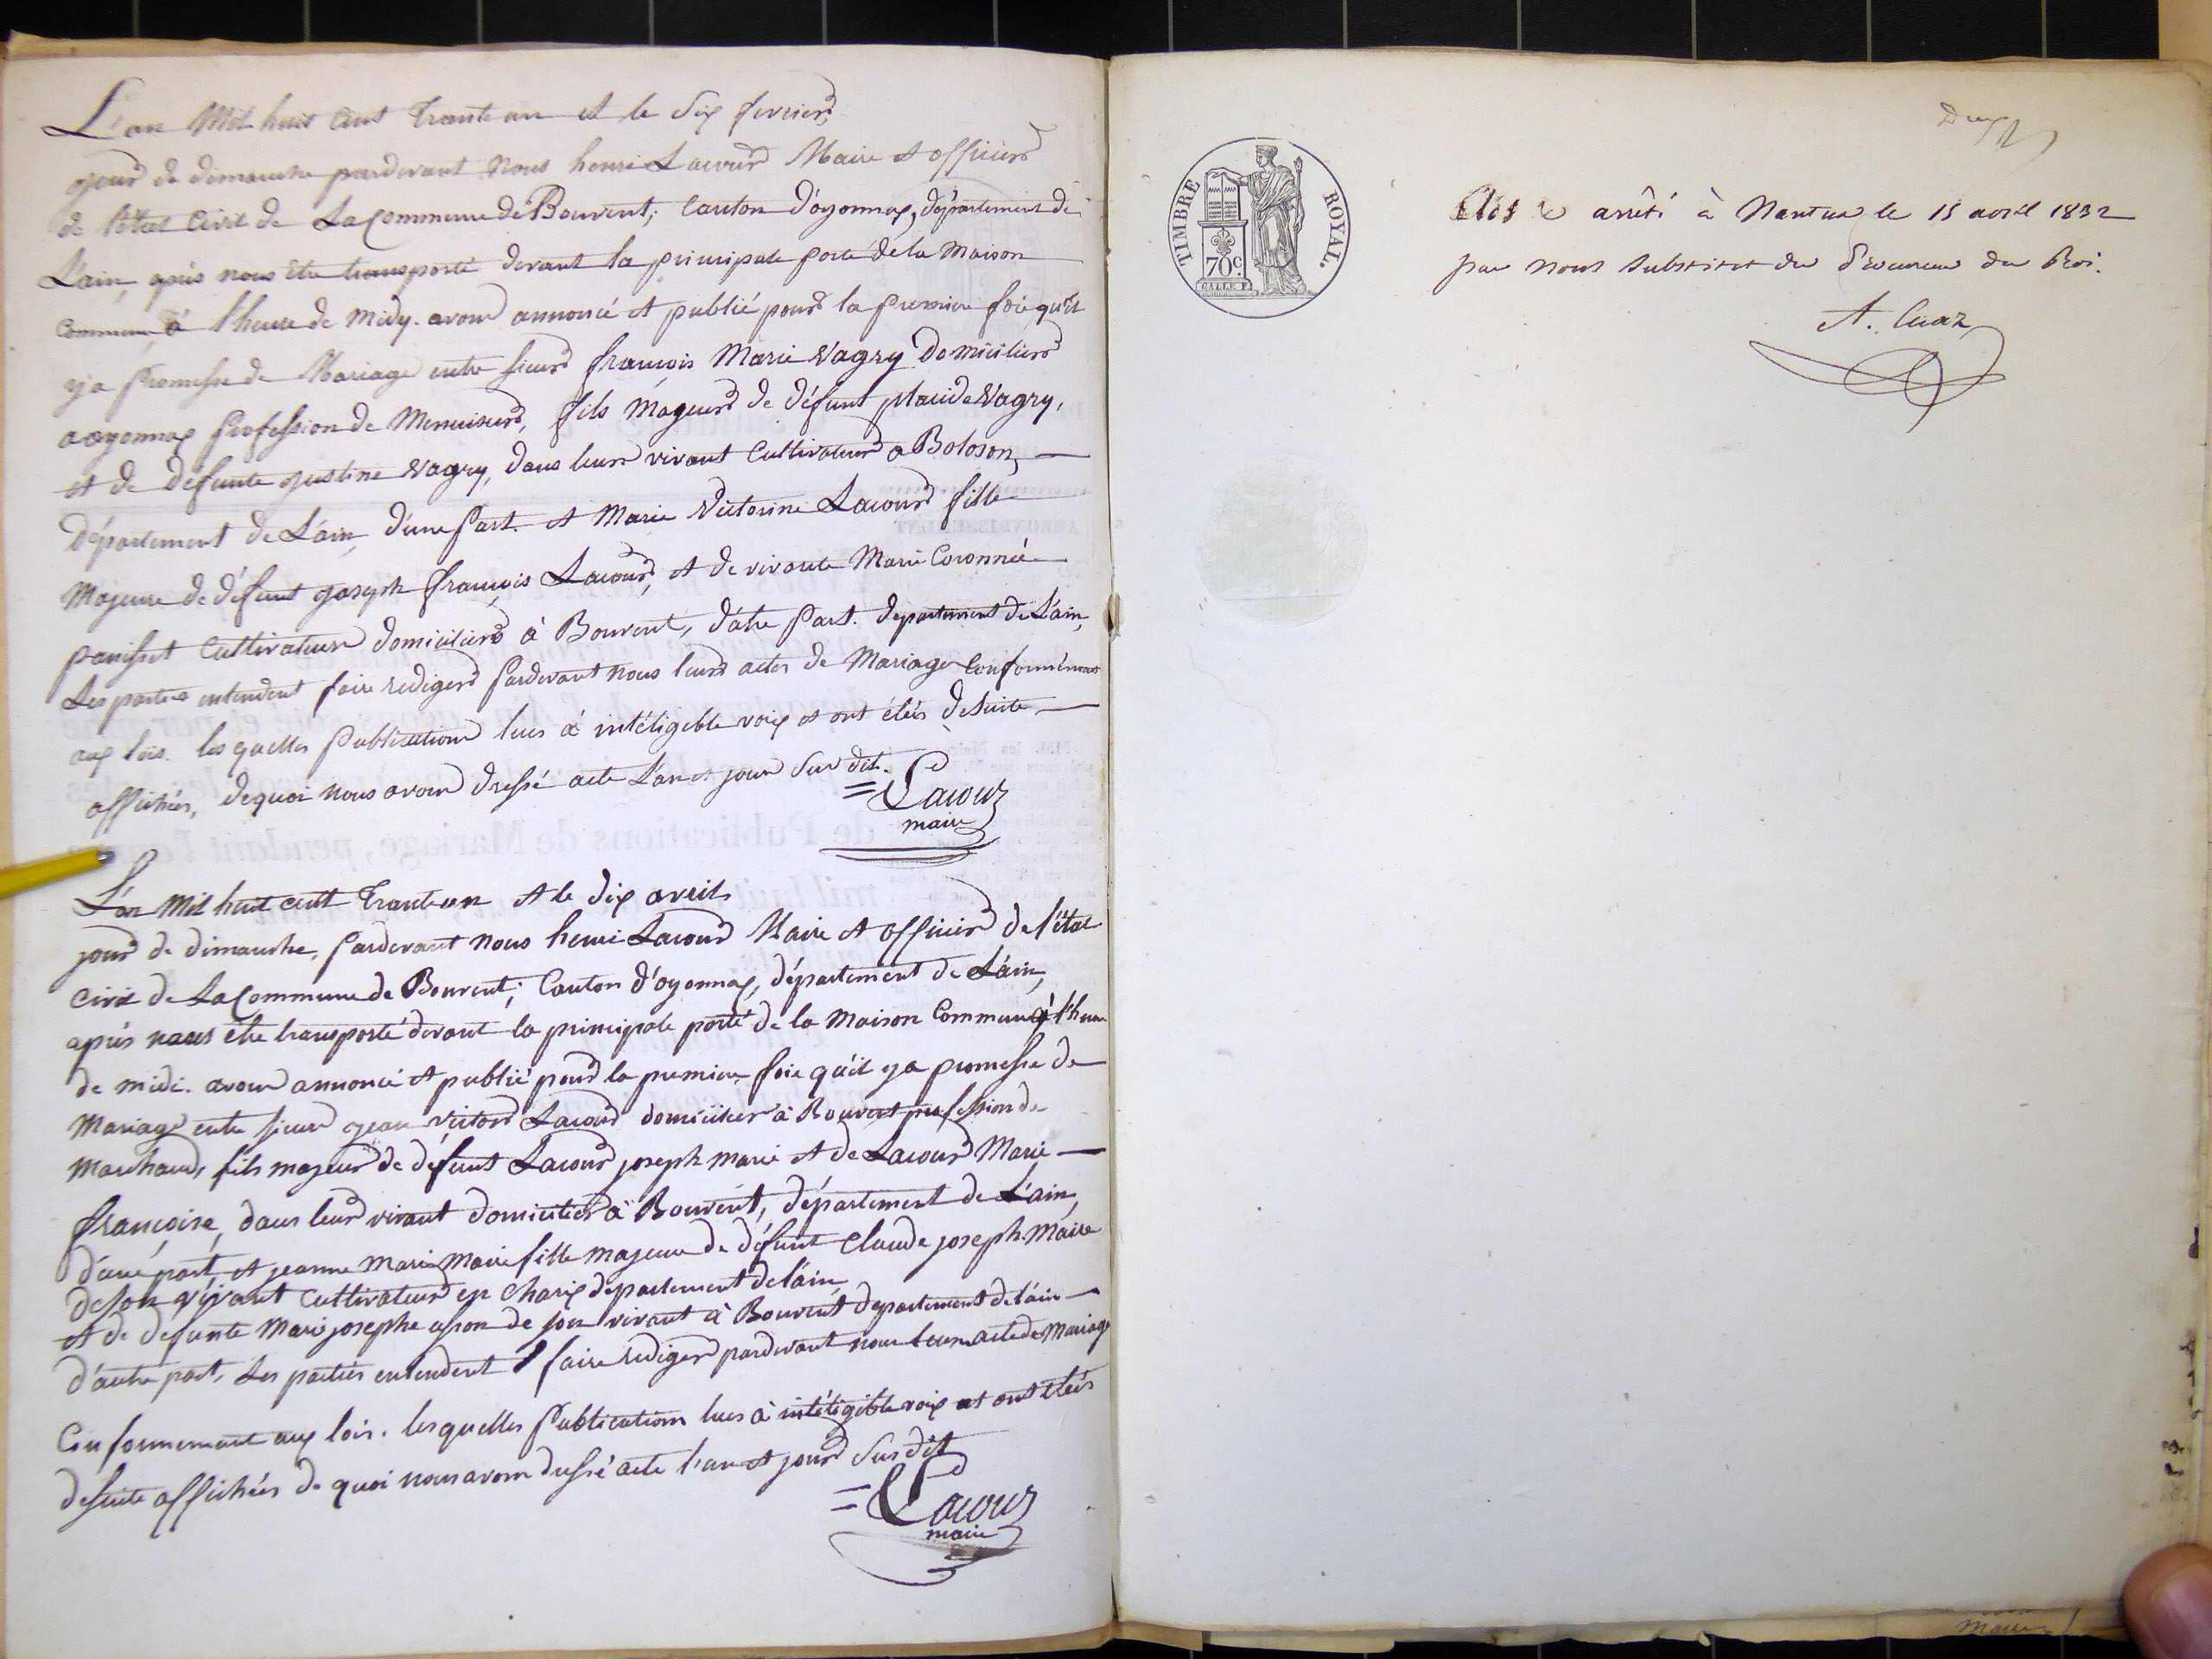 L'an Mil huit Cent Trante un et le six fevrier,
jour de dimanche pardevant Nous henri Lacour Maire et officier
de l'état Civil de La Commune de Bouvent, Canton d'oyonnax, département de
L'ain, après nous être transporté devant la principale porte de la Maison
Commune, à l'heure de midy. avons annoncé et publié pour la premiere fois qu'il
y a Promesse de Mariage entre sieur françois Marie Vagry Domicilier
a oyonnax Profession de Menuisier, fils mageur de défunt placide Vagry,
et de défunte justine Vagry, dans leur vivant Cultivateur a Boloson,
Département de L'ain, d'une Part. et Marie Victorine Lacour fille
Majeure de défunt joseph françois Lacour, et de vivante Marie Coronnée
panisset Cultivateur domicilier à Bouvent, d'atre Part. departement de L'ain,
Les parties entendent faire rediger Pardevant nous leur actes de Mariage Conformément
aux lois. les quelles Publication lues à intéligible voix et ont étées desuite
affichées, de quoi nous avons dressé acte L'an et jour sus dit.
= Lacour
maire
L'an Mil huit cent Trante un et le dix avril
jour de dimanche, Pardevant nous henri Lacour Maire et officier de l'état
Civil de La Commune de Bouvent, Canton d'oyonnax, département de L'ain,
après nous être transporté devant la principale porte de la Maison Commune à l'heure
de midi. avons annoncé et publié pour la premiere fois qu'il y a promesse de
Mariage entre sieur jean victor Lacour domicilier à Bouvent profession de
Marchand, fils majeur de défunt Lacour joseph marie et de Lacour Marie
françoise, dans leur vivant domicilier à Bouvent, département de L'ain,
d'une part, et jeanne Marie Maire fille majeure de défunt Claude joseph Maire
de son vivant Cultivateur en Charix département de l'ain,
et de defunte Marie josephe de son vivant à Bouvent departement de l'ain
d'autre part, Les parties entendent faire rediger pardevant nous leurs acte de Mariage
Conformement aux lois. lesquelles Publication lues à intéligible voix et ont étées
desuite affichées de quoi nous avons dressé acte l'an et jour Sus dit
= Lacour
maire
TIMBRE ROYAL.
70c
Clos et arrêté à Nantua le 15 avril 1832
par nous substitut du Procureur du Roi.
A. Cuaz
maire